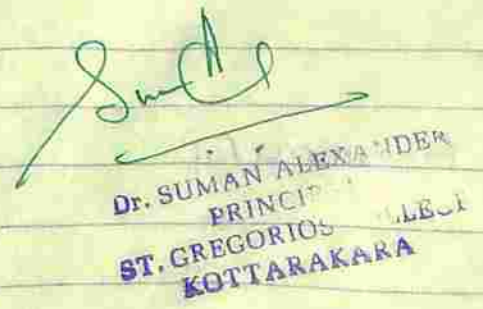 Dr. SUMAN ALEXANDER
PRINCI
ST. GREGORIOS
KOTTARAKARA